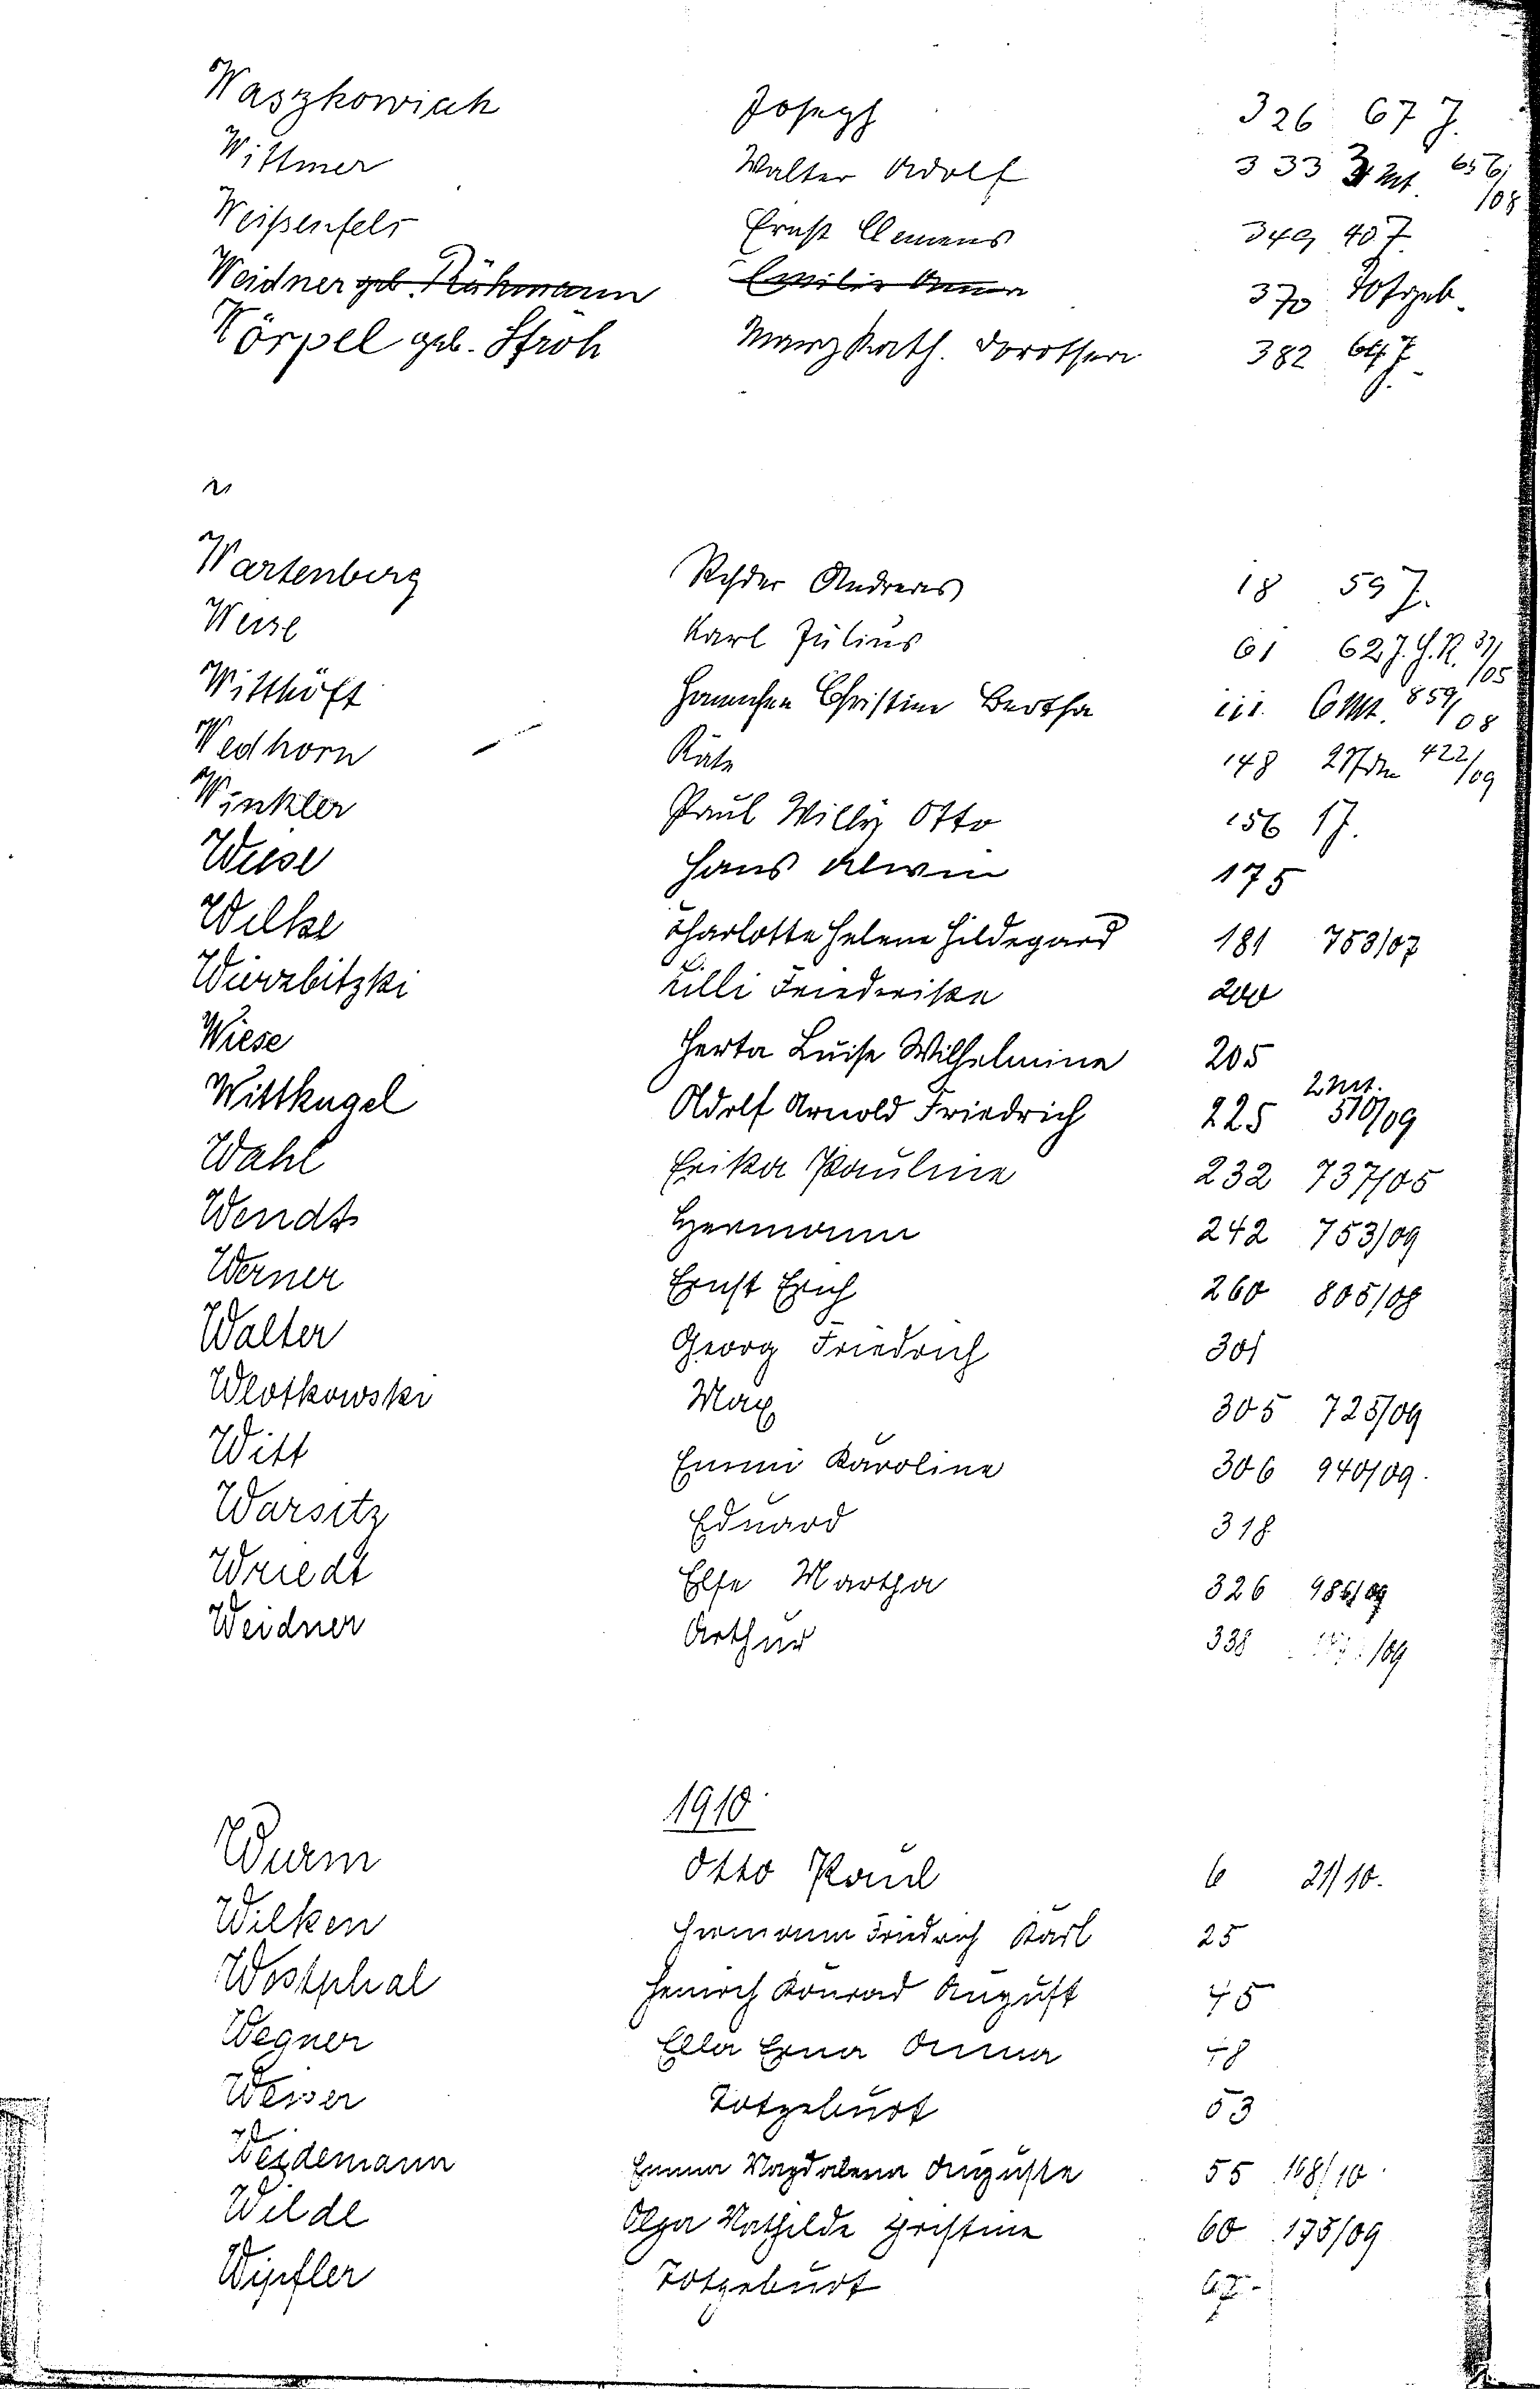 Waszkowiak Joseph 326 67 J.
Wittmer Walter Adolf 333 3 Mt. 656/08
Weißenfels Ernst Clemens 349 40 J
Weidner geb. Rühmann Emilie Anna 370 Totgeb.
Wörpel geb. Stroh Marg Kath. Dorothea 382 64 J.
Wartenberg Andreas 18 59 J.
Weise Karl Julius 61 62 J. G.R. 37/05
Witthöft Hannchen Christine Bertha 111. 6 Mt. 859/08
Wedhorn Käte 148 422/09
Winkler Paul Willy Otto 156 1 J.
Wiese Hans Alwin 175
Wilke Charlotte Helene Hildegard 181 753/07
Wierzbitzki Lilli Friederike 200
Wiese Herta Luise Wilhelmine 205
Wittkugel Adolf Arnold Friedrich 225 2 Mt. 510/09
Wahl Erika Pauline 232 737/05
Wendt Hermann 242 753/09
Werner Ernst Erich 260 805/08
Walter Georg Friedrich 301
Wlotkowski Max 305 725/09
Witt Emmi Karoline 306 940/09.
Warsitz Eduard 318
Wriedt Else Martha 326 986/09
Weidner Arthur 338 /09
1910
Wurm Otto Paul 6 21/10.
Wilken Hermann Friedrich Karl 25
Westphal Heinrich Konrad August 45
Wegner Ella Erna Anna 48
Weiser Totgeburt 53
Weidemann Emma Magdalena Auguste 55 168/10.
Wilde Olga Mathilde Christine 60 175/09
Wipfler Totgeburt 67.